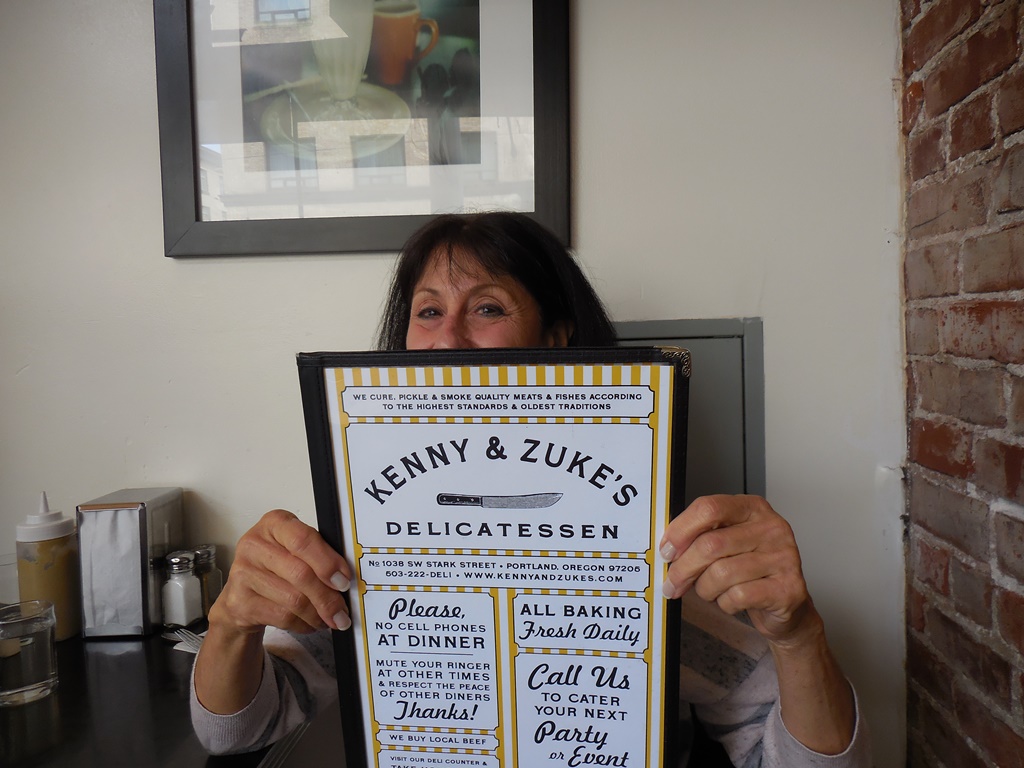 WE CURE, PICKLE & SMOKE QUALITY MEATS & FISHES ACCORDING
TO THE HIGHEST STANDARDS & OLDEST TRADITIONS
KENNY & ZUKE'S
DELICATESSEN
No 1038 SW STARK STREET • PORTLAND, OREGON 97205
503-222-DELI • WWW.KENNYANDZUKES.COM
Please,
NO CELL PHONES
AT DINNER
MUTE YOUR RINGER
AT OTHER TIMES
& RESPECT THE PEACE
OF OTHER DINERS
Thanks!
WE BUY LOCAL BEEF
VISIT OUR DELI COUNTER &
ALL BAKING
Fresh Daily
Call Us
TO CATER
YOUR NEXT
Party
or Event